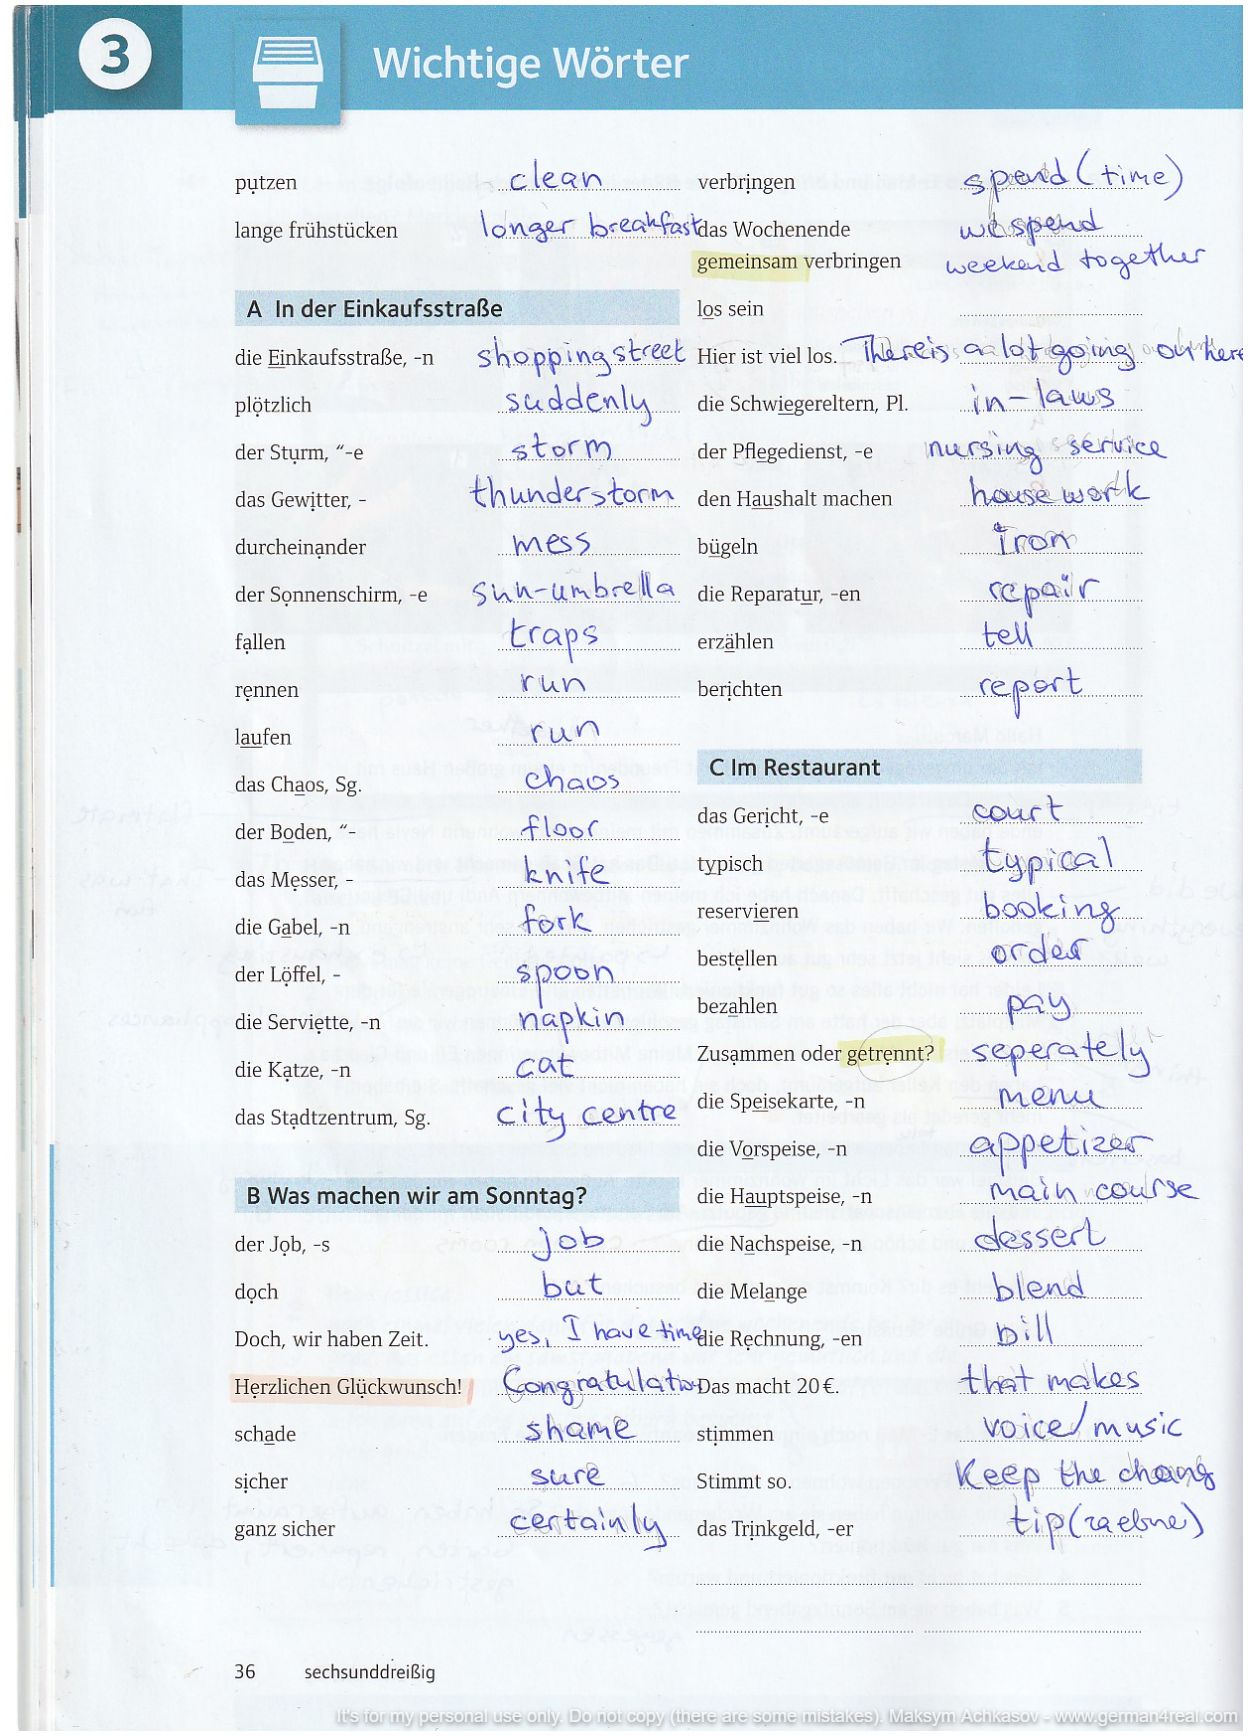 3 Wichtige Wörter
putzen clean
lange frühstücken longer breakfast
A In der Einkaufsstraße
die Einkaufsstraße, -n shopping street
plötzlich suddenly
der Sturm, “-e storm
das Gewitter, - thunderstorm
durcheinander mess
der Sonnenschirm, -e sun-umbrella
fallen traps
rennen run
laufen run
das Chaos, Sg. chaos
der Boden, “- floor
das Messer, - knife
die Gabel, -n fork
der Löffel, - spoon
die Serviette, -n napkin
die Katze, -n cat
das Stadtzentrum, Sg. city centre
B Was machen wir am Sonntag?
der Job, -s job
doch but
Doch, wir haben Zeit. yes, I have time
Herzlichen Glückwunsch! Congratulation
schade shame
sicher sure
ganz sicher certainly
verbringen spend (time)
das Wochenende we spend
gemeinsam verbringen weekend together
los sein
Hier ist viel los. There is a lot going on here
die Schwiegereltern, Pl. in-laws
der Pflegedienst, -e nursing service
den Haushalt machen house work
bügeln iron
die Reparatur, -en repair
erzählen tell
berichten report
C Im Restaurant
das Gericht, -e court
typisch typical
reservieren booking
bestellen order
bezahlen pay
Zusammen oder getrennt? seperately
die Speisekarte, -n menu
die Vorspeise, -n appetizer
die Hauptspeise, -n main course
die Nachspeise, -n dessert
die Melange blend
die Rechnung, -en bill
Das macht 20 €. that makes
stimmen voice/music
Stimmt so. Keep the chang
das Trinkgeld, -er tip
36 sechsunddreißig
It's for my personal use only. Do not copy (there are some mistakes). Maksym Achkasov - www.german4real.com